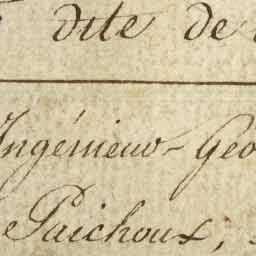 dite de
Ingénieur-Géo
Paichoux,